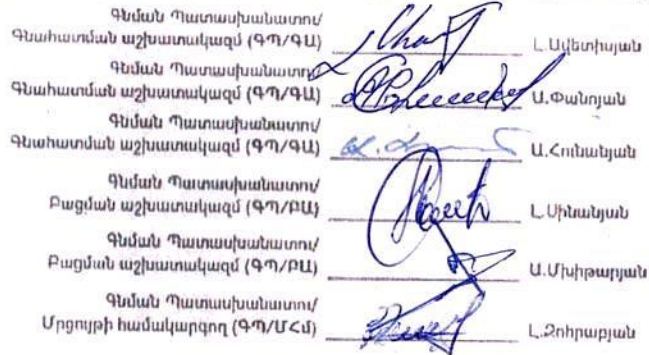 Գնման Պատասխանատու/
Գնահատման աշխատակազմ (ԳՊ/ԳԱ) Լ.Ավետիսյան
Գնման Պատասխանատու/
Գնահատման աշխատակազմ (ԳՊ/ԳԱ) Ա.Փանոյան
Գնման Պատասխանատու/
Գնահատման աշխատակազմ (ԳՊ/ԳԱ) Ա.Հունանյան
Գնման Պատասխանատու/
Բացման աշխատակազմ (ԳՊ/ԲԱ) Լ.Սինանյան
Գնման Պատասխանատու/
Բացման աշխատակազմ (ԳՊ/ԲԱ) Ա.Մխիթարյան
Գնման Պատասխանատու/
Մրցույթի համակարգող (ԳՊ/ՄՀմ) Լ.Զոհրաբյան